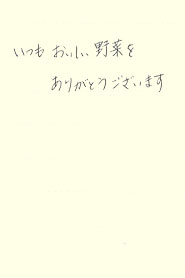 いつも おいしい 野菜を
ありがとう ございます